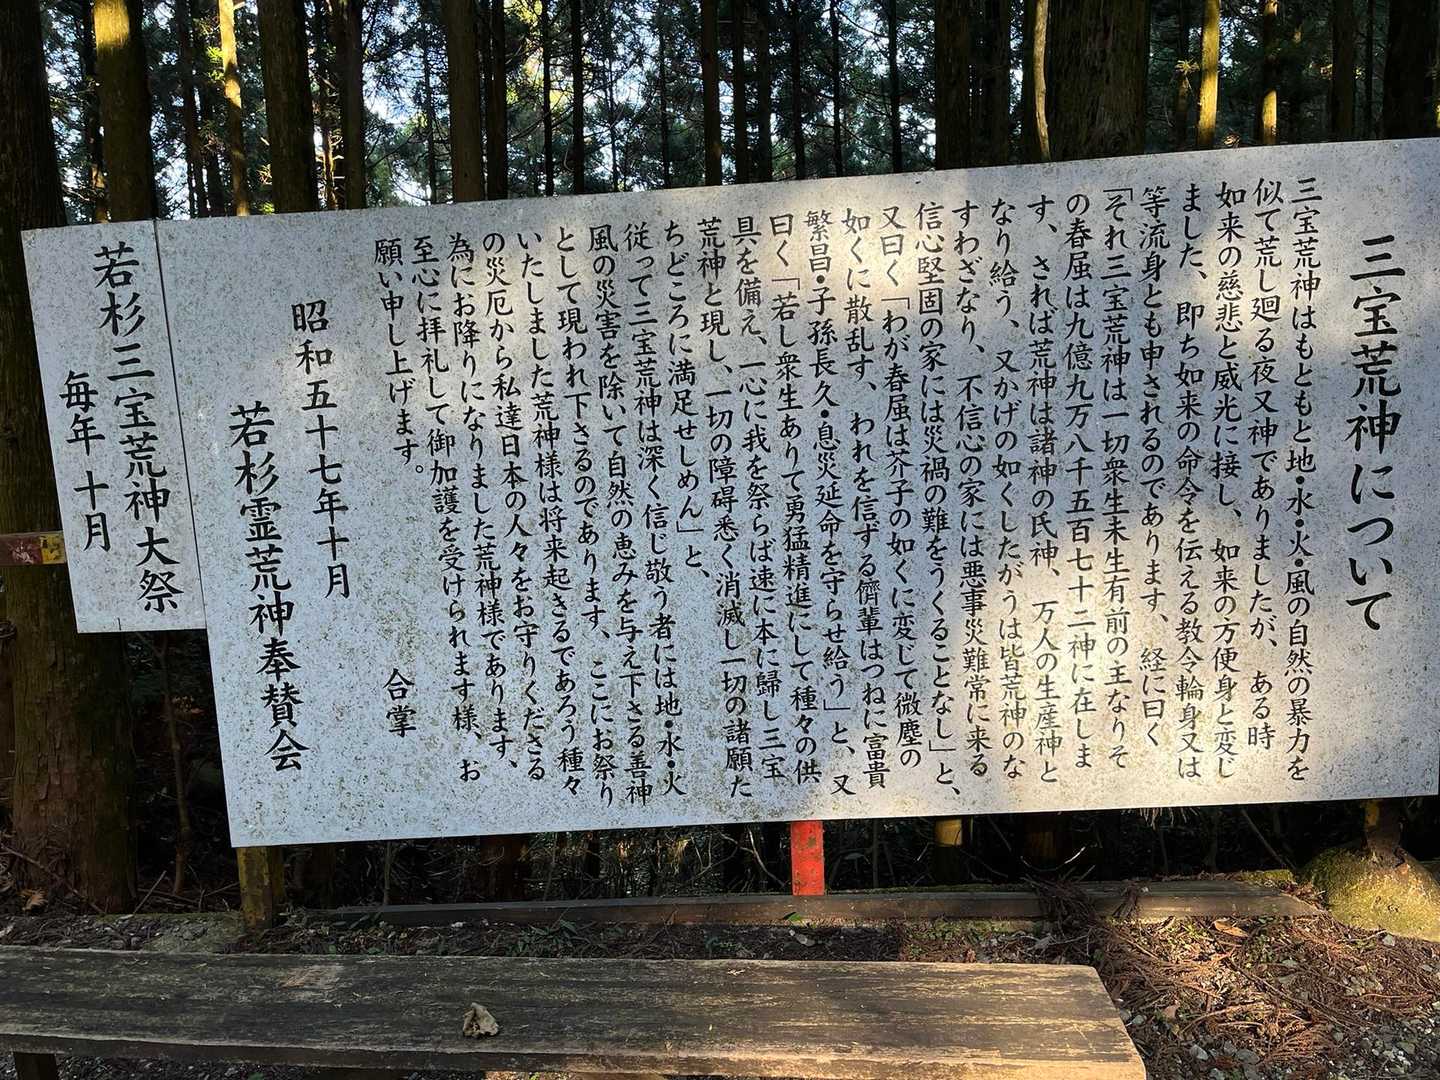 三宝荒神について
三宝荒神はもともと地・水・火・風の自然の暴力を
似て荒し廻る夜叉神でありましたが、ある時
如来の慈悲と威光に接し、如来の方便身と変じ
ました、即ち如来の命令を伝える教令輪身又は
等流身とも申されるのであります、経に曰く
「それ三宝荒神は一切衆生未生有前の主なりそ
の春属は九億九万八千五百七十二神に在しま
す、されば荒神は諸神の氏神、万人の生産神と
なり給う、又かげの如くしたがうは皆荒神のな
すわざなり、不信心の家には悪事災難常に来る
信心堅固の家には災禍の難をうくることなし」と、
又曰く「わが春属は芥子の如くに変じて微塵の
如くに散乱す、われを信ずる儕輩はつねに富貴
繁昌・子孫長久・息災延命を守らせ給う」と、又
曰く「若し衆生ありて勇猛精進にして種々の供
具を備え、一心に我を祭らば速に本に歸し三宝
荒神と現し、一切の障碍悉く消滅し一切の諸願た
ちどころに満足せしめん」と、
従って三宝荒神は深く信じ敬う者には地・水・火
風の災害を除いて自然の恵みを与え下さる善神
として現われ下さるのであります、ここにお祭り
いたしました荒神様は将来起きるであろう種々
の災厄から私達日本の人々をお守りくださる
為にお降りになりました荒神様であります、
至心に拝礼して御加護を受けられます様、お
願い申し上げます。
合掌
昭和五十七年十月
若杉霊荒神奉賛会
若杉三宝荒神大祭
毎年十月